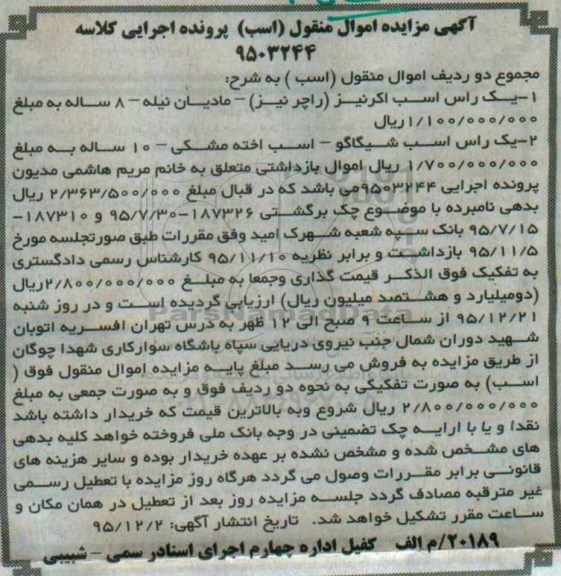 آگهی مزایده اموال منقول (اسب) پرونده اجرایی کلاسه
۹۵۰۳۲۴۴
مجموع دو ردیف اموال منقول (اسب) به شرح:
۱-یک راس اسب اکرنیز (راچر نیز) – مادیان نیله – ۸ ساله به مبلغ
۱/۱۰۰/۰۰۰/۰۰۰ریال
۲-یک راس اسب شیگاگو – اسب اخته مشکی – ۱۰ ساله به مبلغ
۱/۷۰۰/۰۰۰/۰۰۰ ریال اموال بازداشتی متعلق به خانم مریم هاشمی مدیون
پرونده اجرایی ۹۵۰۳۲۴۴می باشد که در قبال مبلغ ۲/۳۶۳/۵۰۰/۰۰۰ ریال
بدهی نامبرده با موضوع چک برگشتی ۱۸۷۳۲۶-۹۵/۷/۳۰ و ۱۸۷۳۱۰-
۹۵/۷/۱۵ بانک سپه شعبه شهرک امید وفق مقررات طبق صورتجلسه مورخ
۹۵/۱۱/۵ بازداشت و برابر نظریه ۹۵/۱۱/۱۰ کارشناس رسمی دادگستری
به تفکیک فوق الذکر قیمت گذاری وجمعا به مبلغ ۲/۸۰۰/۰۰۰/۰۰۰ریال
(دومیلیارد و هشتصد میلیون ریال) ارزیابی گردیده است و در روز شنبه
۹۵/۱۲/۲۱ از ساعت ۹ صبح الی ۱۲ ظهر به درس تهران افسریه اتوبان
شهید دوران شمال جنب نیروی دریایی سپاه باشگاه سوارکاری شهدا چوگان
از طریق مزایده به فروش می رسد مبلغ پایه مزایده اموال منقول فوق (
اسب) به صورت تفکیکی به نحوه دو ردیف فوق و به صورت جمعی به مبلغ
۲/۸۰۰/۰۰۰/۰۰۰ ریال شروع وبه بالاترین قیمت که خریدار داشته باشد
نقدا و یا با ارایه چک تضمینی در وجه بانک ملی فروخته خواهد کلیه بدهی
های مشخص شده و مشخص نشده بر عهده خریدار بوده و سایر هزینه های
قانونی برابر مقررات وصول می گردد هرگاه روز مزایده با تعطیل رسمی
غیر مترقبه مصادف گردد جلسه مزایده روز بعد از تعطیل در همان مکان و
ساعت مقرر تشکیل خواهد شد. تاریخ انتشار آگهی: ۹۵/۱۲/۲
۲۰۱۸۹/م الف کفیل اداره چهارم اجرای اسنادر سمی – شبیبی
ParsNamadData